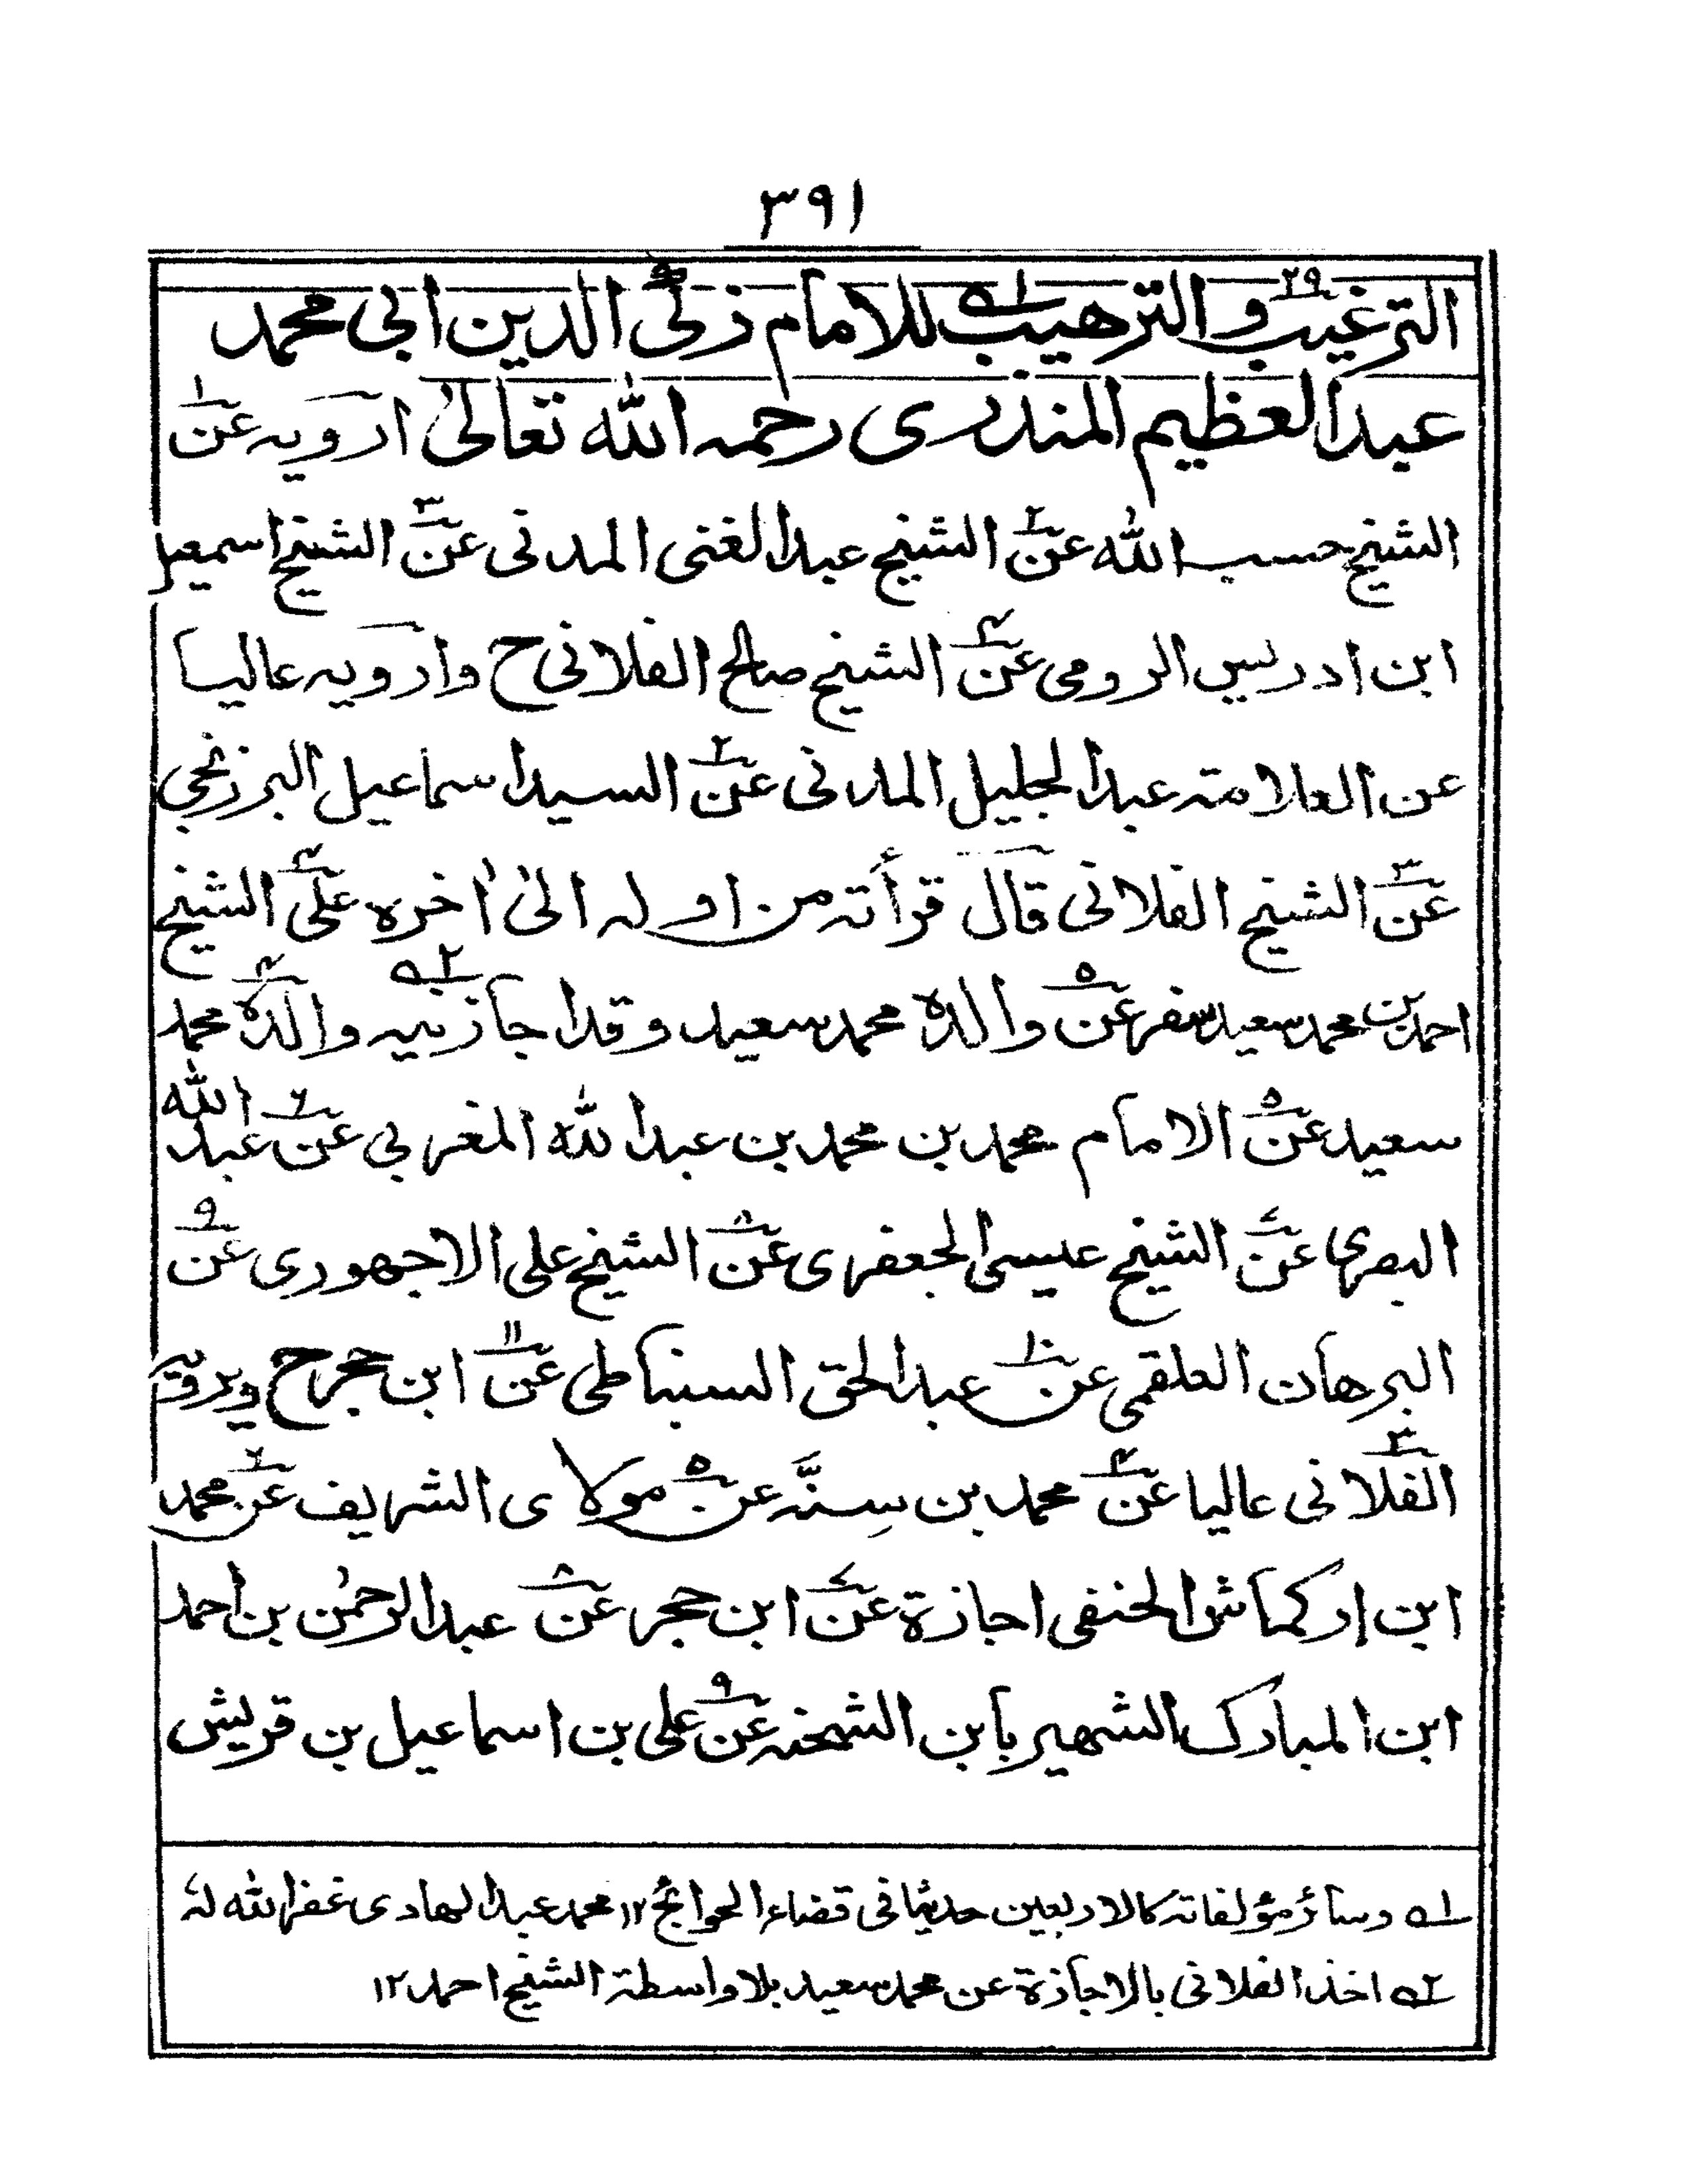 ٣٩١
الترغيب٢٩ والترهيب١ه للامام زكى الدين ابى محمد
عبدالعظيم المنذرى رحمه الله تعالىٰ ارويه عن١
الشيخ حسب الله عن٢ الشيخ عبدالغنى المدنى عن٣ الشيخ اسمعيل
ابن ادريس الرومى عن٤ الشيخ صالح الفلانى ح وارويه عاليا
عن العلامة عبدالجليل المدنى عن٢ السيد اسماعيل البرزنجى
عن٣ الشيخ الفلانى قال قرأته من اوله الىٰ اٰخره على٤ الشيخ
احمد بن محمد سعيد سفر عن٥ والده محمد سعيد وقد اجازنيه٢ه والده٤ محمد
سعيد عن٥ الامام محمد بن محمد بن عبدالله المغربى عن٦ عبدالله
البصرى عن٧ الشيخ عيسى الجعفرى عن٨ الشيخ على الاجهورى عن٩
البرهان العلقمى عن١٠ عبدالحق السنباطى عن١١ ابن حجر ح ويرويه
الفلانى٣ عاليا عن٤ محمد بن سِنَّه عن٥ مولاى الشريف عن٦ محمد
ابن إركماش الحنفى اجازة عن٧ ابن حجر عن٨ عبدالرحمٰن بن احمد
ابن المبارك الشهير بابن الشحنه عن٩ على بن اسماعيل بن قريش
١ه وسائر مؤلفاته كالاربعين حديثا فى قضاء الحوائج ١٢ محمد عبدالهادى غفرالله له
٢ه اخذ الفلانى بالاجازة عن محمد سعيد بلا واسطة الشيخ احمد ١٢